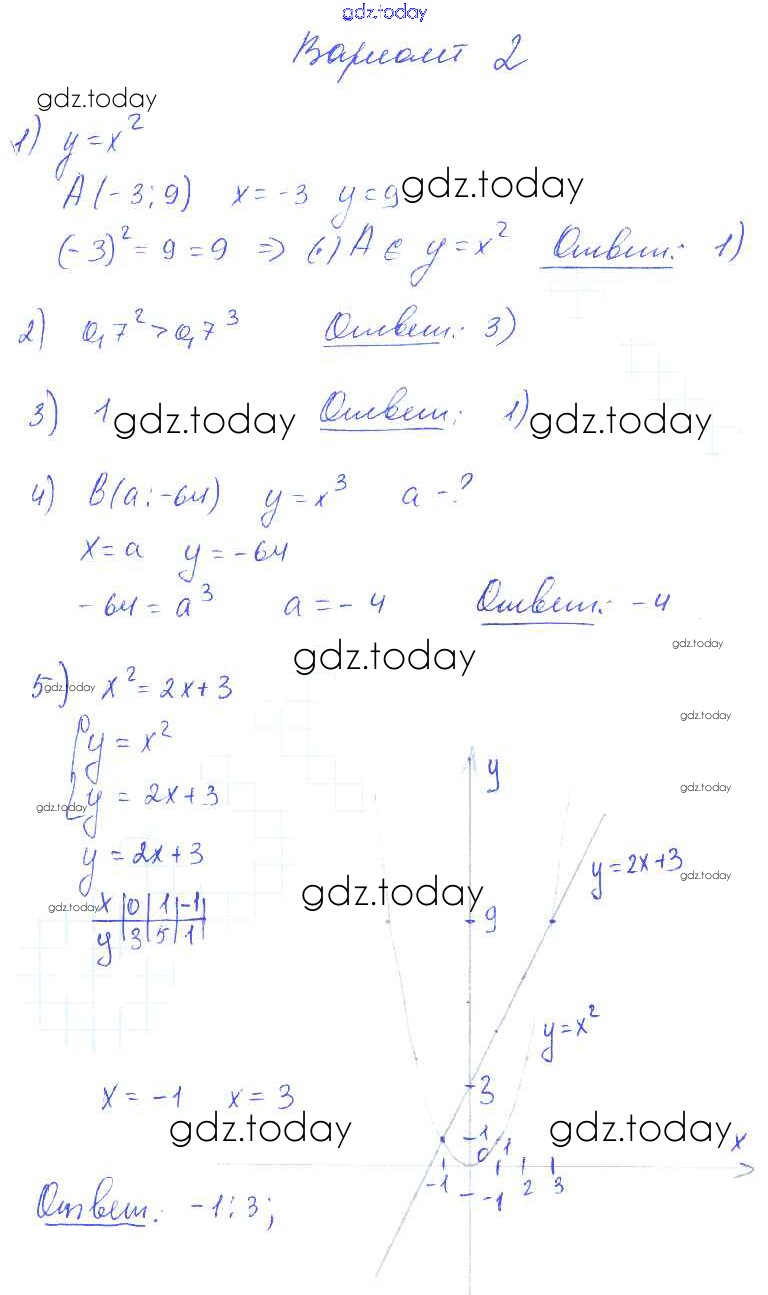 gdz.today
Вариант 2
gdz.today
1) y = x²
A (-3; 9) x = -3 y = 9 gdz.today
(-3)² = 9 = 9 ⇒ (·) A ∈ y = x² Ответ: 1)
2) 0,7² > 0,7³ Ответ: 3)
3) 1 gdz.today Ответ: 1) gdz.today
4) B(a; -64) y = x³ a - ?
x = a y = -64
-64 = a³ a = -4 Ответ: -4
gdz.today gdz.today
5) gdz.today x² = 2x+3
gdz.today
{ y = x²
y
gdz.today y = 2x+3
gdz.today
y = 2x+3
y = 2x+3 gdz.today
gdz.today x | 0 | 1 | -1
gdz.today
y | 3 | 5 | 1
9
y = x²
x = -1 x = 3
3
gdz.today
1
0 1
gdz.today x
-1 -1 2 3
Ответ: -1; 3;